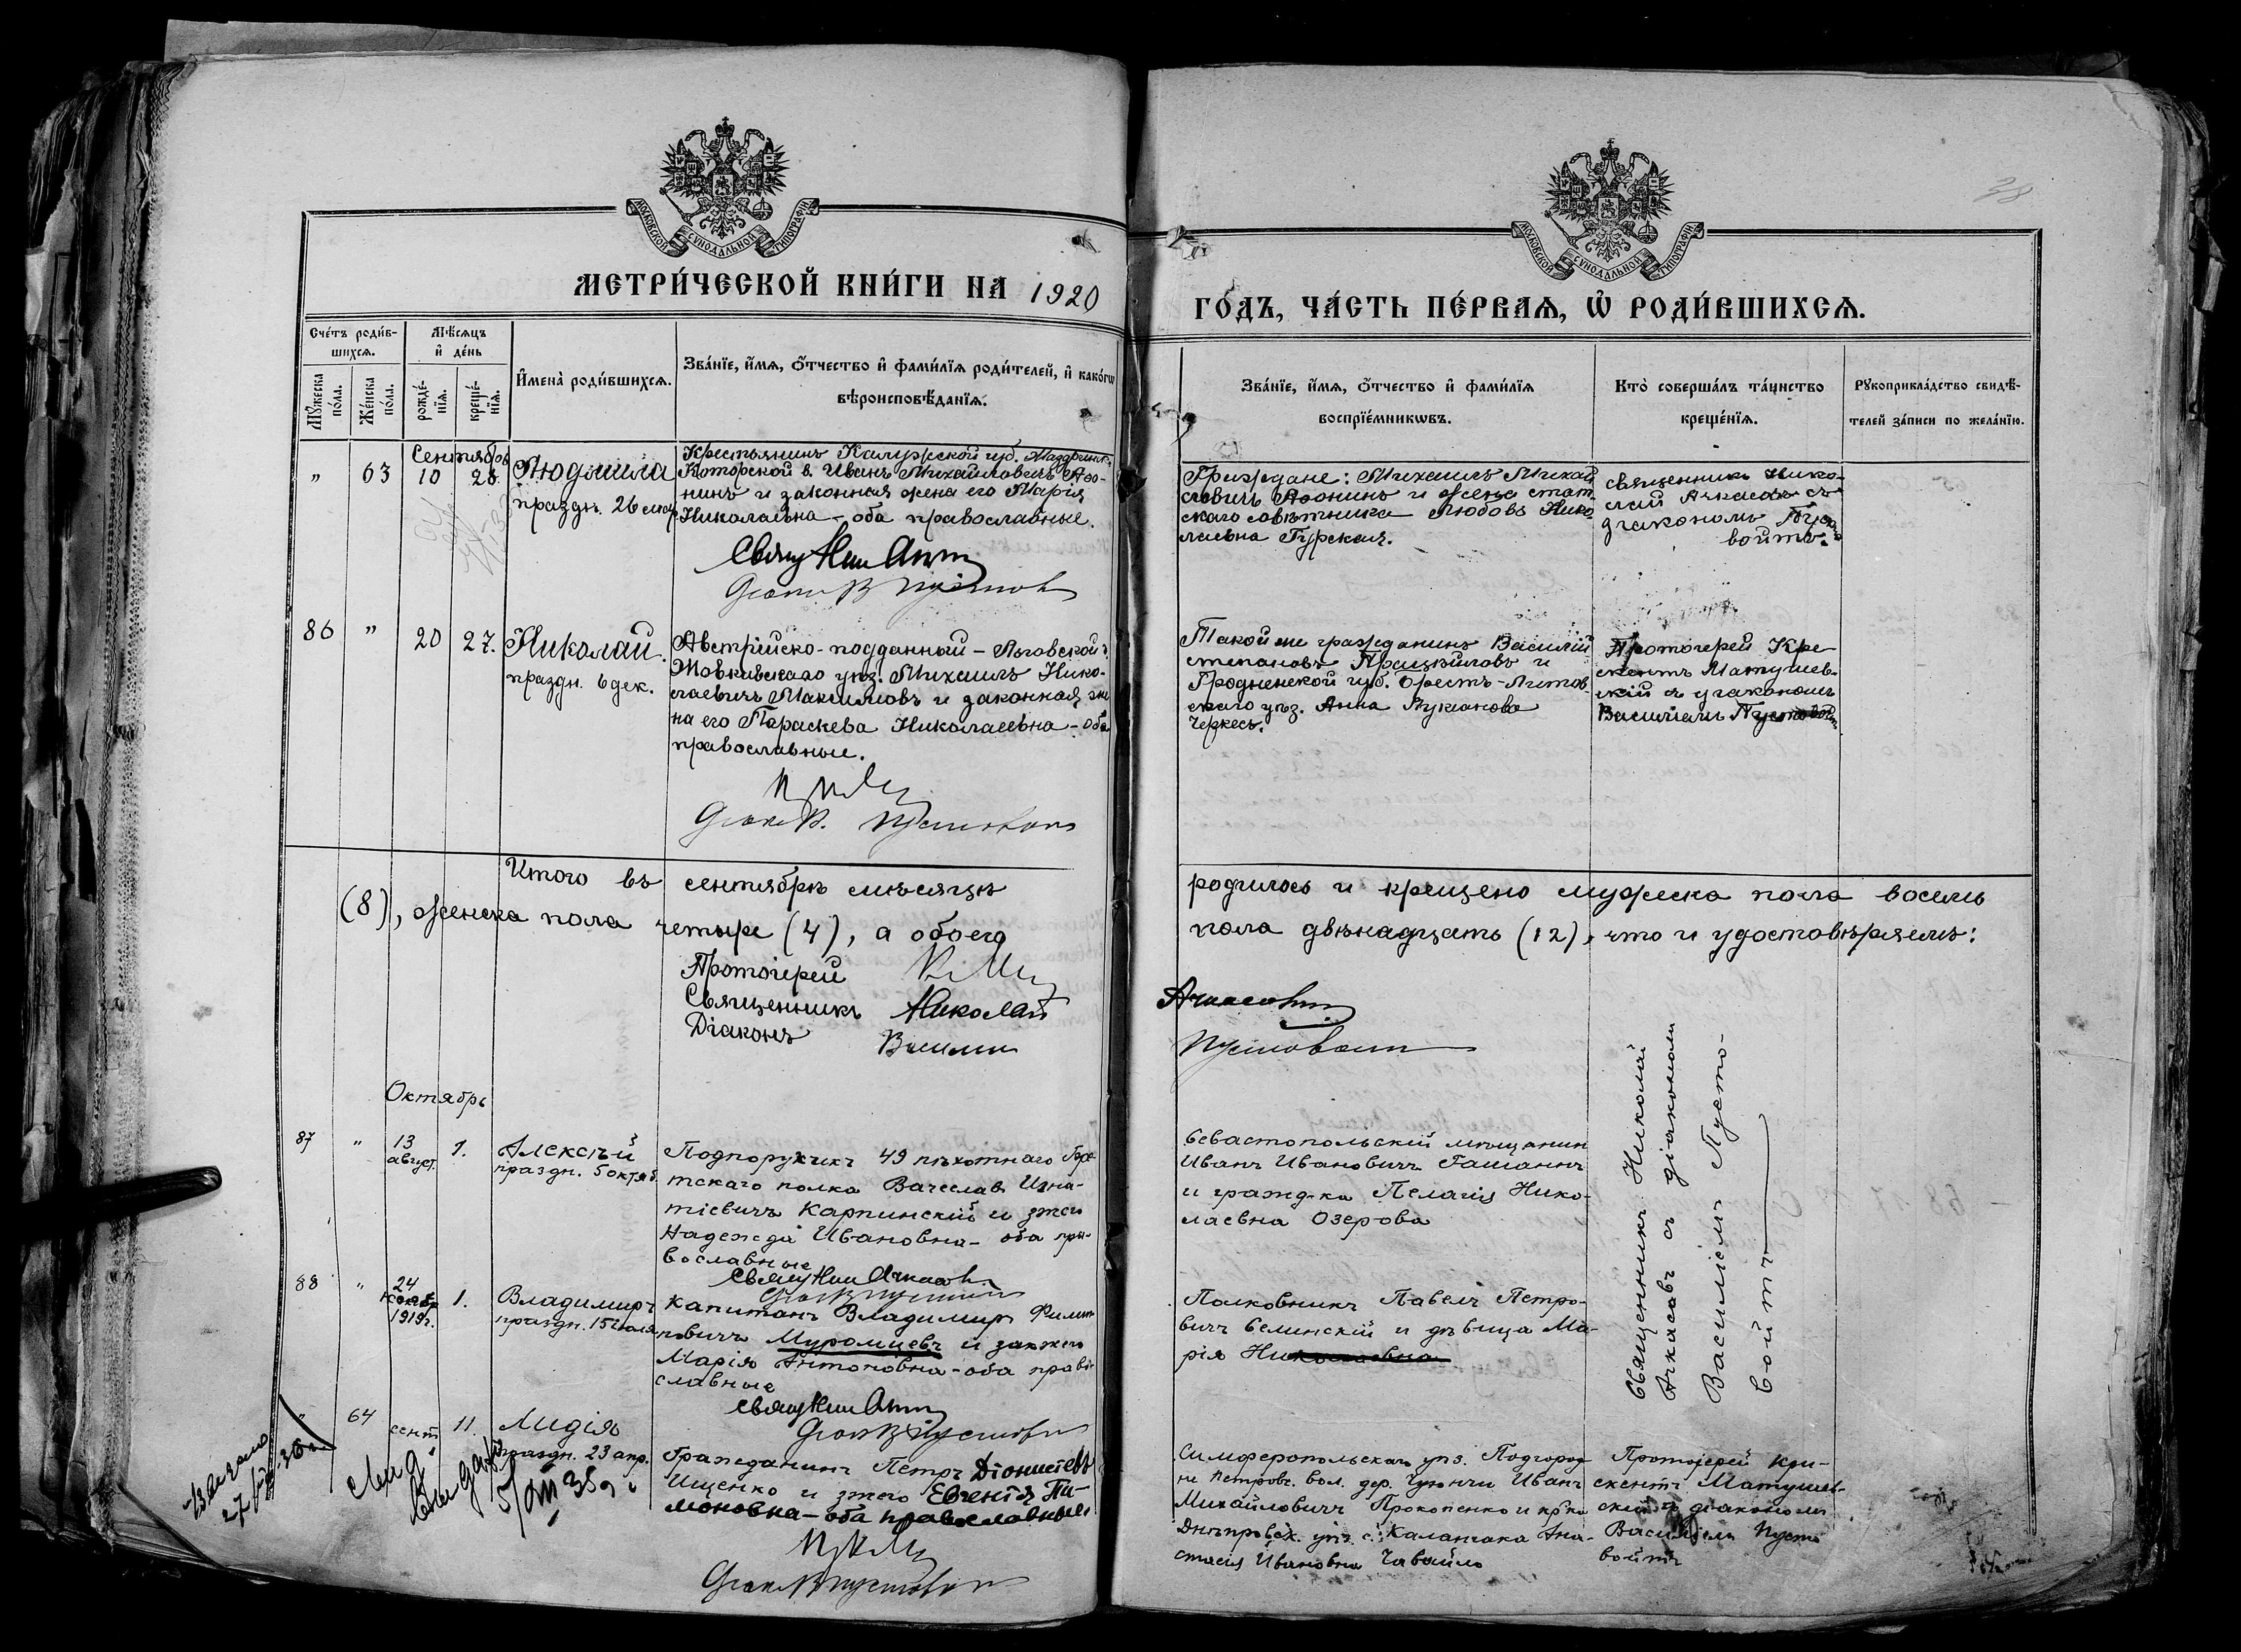 38
МОСКОВСКОЙ СѴНОДАЛЬНОЙ ТИПОГРАФІИ
МОСКОВСКОЙ СѴНОДАЛЬНОЙ ТИПОГРАФІИ
МЕТРИ́ЧЕСКОЙ КНИ́ГИ НА 1920
ГО́ДЪ, ЧА́СТЬ ПЕ́РВАѦ, Ѡ҆ РОДИ́ВШИХСѦ.
Сче́тъ роди́в-
шихсѧ.
Мѣ́сѧцъ
и҆ де́нь
Мꙋ́жеска
по́ла.
Же́нска
по́ла.
рожде́-
нїѧ.
креще́-
нїѧ.
И҆мена̀ роди́вшихсѧ.
Зва́нїе, и҆́мѧ, ѻ҆́тчество и҆ фами́лїѧ роди́телей, и҆ како́гѡ
вѣроисповѣ́данїѧ.
Зва́нїе, и҆́мѧ, ѻ҆́тчество и҆ фами́лїѧ
воспрїе́мникѡвъ.
Кто̀ соверша́лъ та́инство
креще́нїѧ.
Рꙋкоприкла́дство свидѣ́-
телей за́писи по жела́нїю.
Сентябрь
" 63 10 28.
Людмила
праздн. 26 мар.
Крестьянинъ Калужской губ.
в. Иванъ Михайловичъ Аѳо-
нинъ и законная жена его Марія
Николаевна – оба православные.
Граждане: Михаилъ Михай-
ловичъ Аѳонинъ и жена стат-
скаго совѣтника Любовь Нико-
лаевна Гурская.
Священникъ Нико-
лай Ачкасовъ съ
діакономъ Пусто-
войтъ.
86 " 20 27.
Николай.
праздн. 6 дек.
Австрійско-подданный – Льговской г.
Жовкивскаго уѣз. Михаилъ Нико-
лаевичъ Максимовъ и законная же-
на его Параскева Николаевна – оба
православные.
Такой же гражданинъ Василій
Степановъ и
Гродненской губ. Брестъ-Литов-
скаго уѣз. Анна Лукіанова
Черкесъ.
Протоіерей Кри-
скентъ Матушев-
скій съ діакономъ
Василіемъ Пустовойтъ
Итого въ сентябрѣ мѣсяцѣ
родилось и крещено мужеска пола восемь
(8), женска пола четыре (4), а обоего
пола двѣнадцать (12), что и удостовѣряемъ:
Протоіерей
Священникъ Николай Ачкасовъ
Діаконъ Василій Пустовойтъ
Октябрь
87 " 13 август. 1.
Алексѣй
праздн. 5 октяб.
Подпоручикъ 49 пѣхотнаго Бре-
тскаго полка Вячеслав Игна-
тіевичъ Карпинскій и з жего
Надежда Ивановна – оба пра-
вославные
Севастопольскій мѣщанин
Иванъ Ивановичъ Гашанинъ
и гражд-ка Пелагія Нико-
лаевна Озерова
Священникъ Николай
Ачкасовъ съ діакономъ
Василіемъ Пусто-
войтъ
88 " 24 1919г. 1.
Владимиръ
праздн. 15 іюля
Капитанъ Владимир Филип-
повичъ Муромцевъ и зак жего
Марія Антоновна – оба право-
славные
Полковникъ Павелъ Петро-
вичъ Селинскій и дѣвица Ма-
рія Николаевна
" 64 сент 11.
Лидія
праздн. 23 апр.
Гражданинъ Петръ Діонисіевъ
Ищенко и з жего Евгенія Пи-
моновна – оба православные
Симферопольскаго уѣз. Подгород-
не Петровс. вол. дер. Чуюнчи Иванъ
Михайловичъ Прокопенко и кр-ка
Днѣпровск. уѣз. с. Каланчака Ана-
стасія Ивановна Чабайло
Протоіерей Кри-
скентъ Матушев-
скій съ діакономъ
Василіемъ Пусто-
войтъ